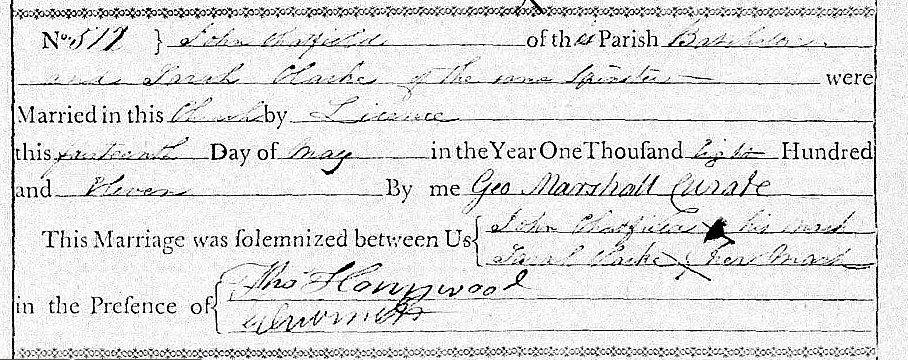 No. 517 } John Chatfield of this Parish Bachelor
and Sarah Clarke of the same Spinster were
Married in this Church by Licence
this fourteenth Day of May in the Year One Thouſand Eight Hundred
and Eleven By me Geo Marshall Curate
This Marriage was ſolemnized between Us { John Chatfield X his mark
Sarah Clarke X her Mark
in the Preſence of { Thos Honywood